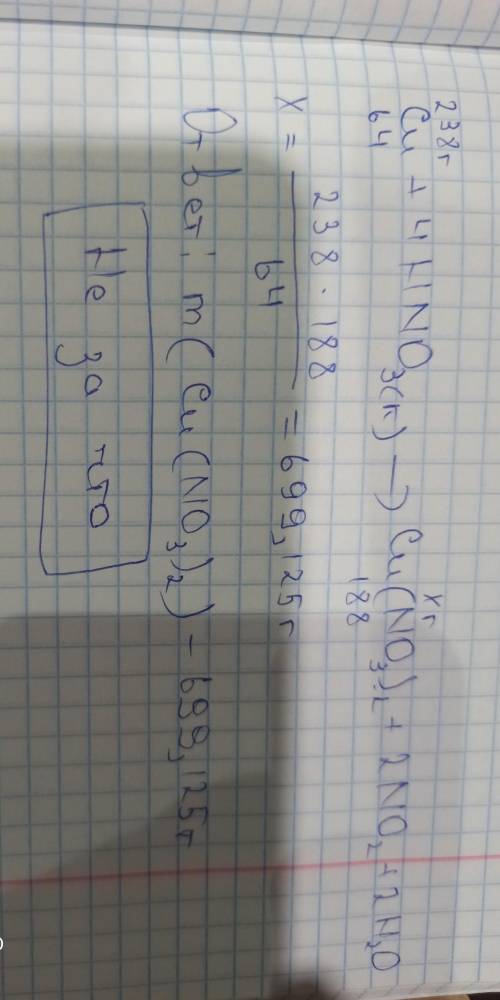 238г xг
Cu + 4HNO3(к) → Cu(NO3)2 + 2NO2 + 2H2O
64 188
238 · 188
x = ―――― = 699,125г
64
Ответ: m(Cu(NO3)2) – 699,125г
Не за что